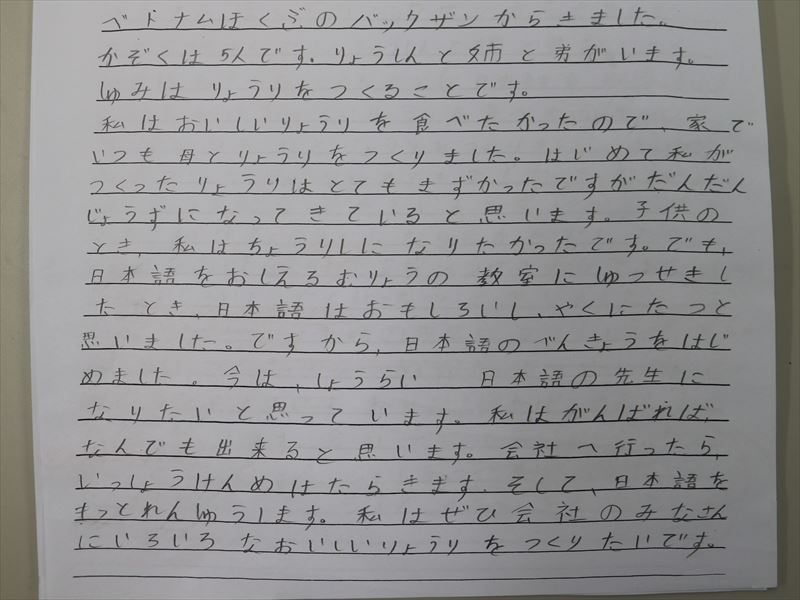 ベトナムほくぶのバックザンからきました。
かぞくは5人です。りょうしんと姉と弟がいます。
しゅみはりょうりをつくることです。
私はおいしいりょうりを食べたかったので、家で
いつも母とりょうりをつくりました。はじめて私が
つくったりょうりはとてもきずかったですがだんだん
じょうずになってきていると思います。子供の
とき、私はちょうりしになりたかったです。でも、
日本語をおしえるむりょうの教室にしゅっせきし
たとき、日本語はおもしろいし、やくにたつと
思いました。ですから、日本語のべんきょうをはじ
めました。今は、しょうらい 日本語の先生に
なりたいと思っています。私はがんばれば、
なんでも出来ると思います。会社へ行ったら、
いっしょうけんめはたらきます。そして、日本語を
もっとれんしゅうします。私はぜひ会社のみなさん
にいろいろなおいしいりょうりをつくりたいです。